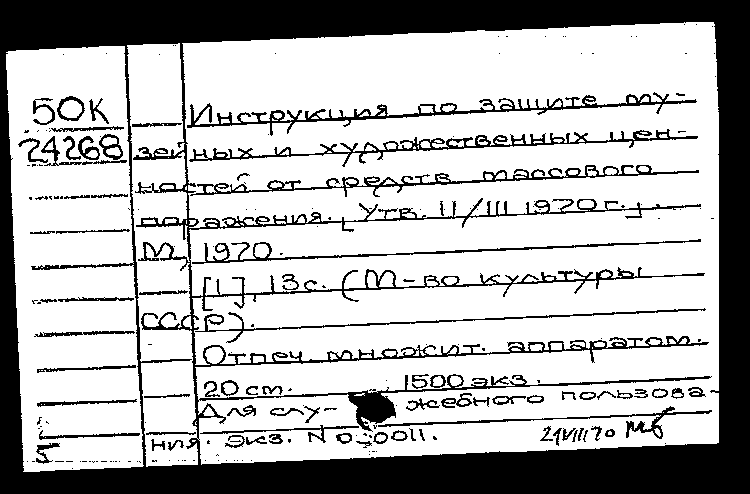 50К
24268
Инструкция по защите му-
зейных и художественных цен-
ностей от средств массового
поражения. [Утв. 11/III 1970 г.].
М, 1970.
[1], 13 с. (М-во культуры
СССР).
Отпеч. множит. аппаратом.
20 см. 1500 экз.
Для слу- жебного пользова-
ния. Экз. N 0-0011.
21VIII70